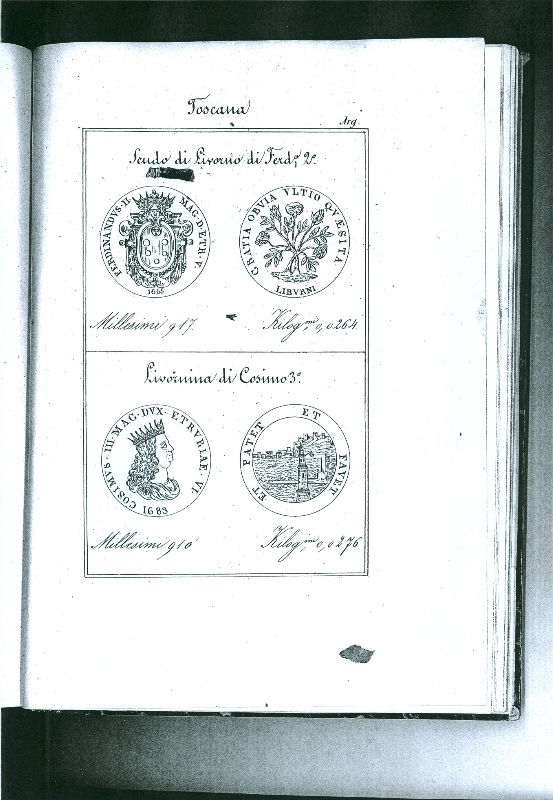 Toscana
Arg.
Scudo di Livorno di Ferd.º 2º.
FERDINANDVS·II MAG·D·ETR·V·
1655
GRATIA OBVIA VLTIO QVÆSITA
LIBVRNI
Millesimi 917. Kilog.mi 0,0264
Livornina di Cosimo 3º.
COSIMVS·III·MAG·DVX·ETRVRIAE·VI·
1683
ET PATET ET FAVET
Millesimi 910 Kilog.mi 0,0276